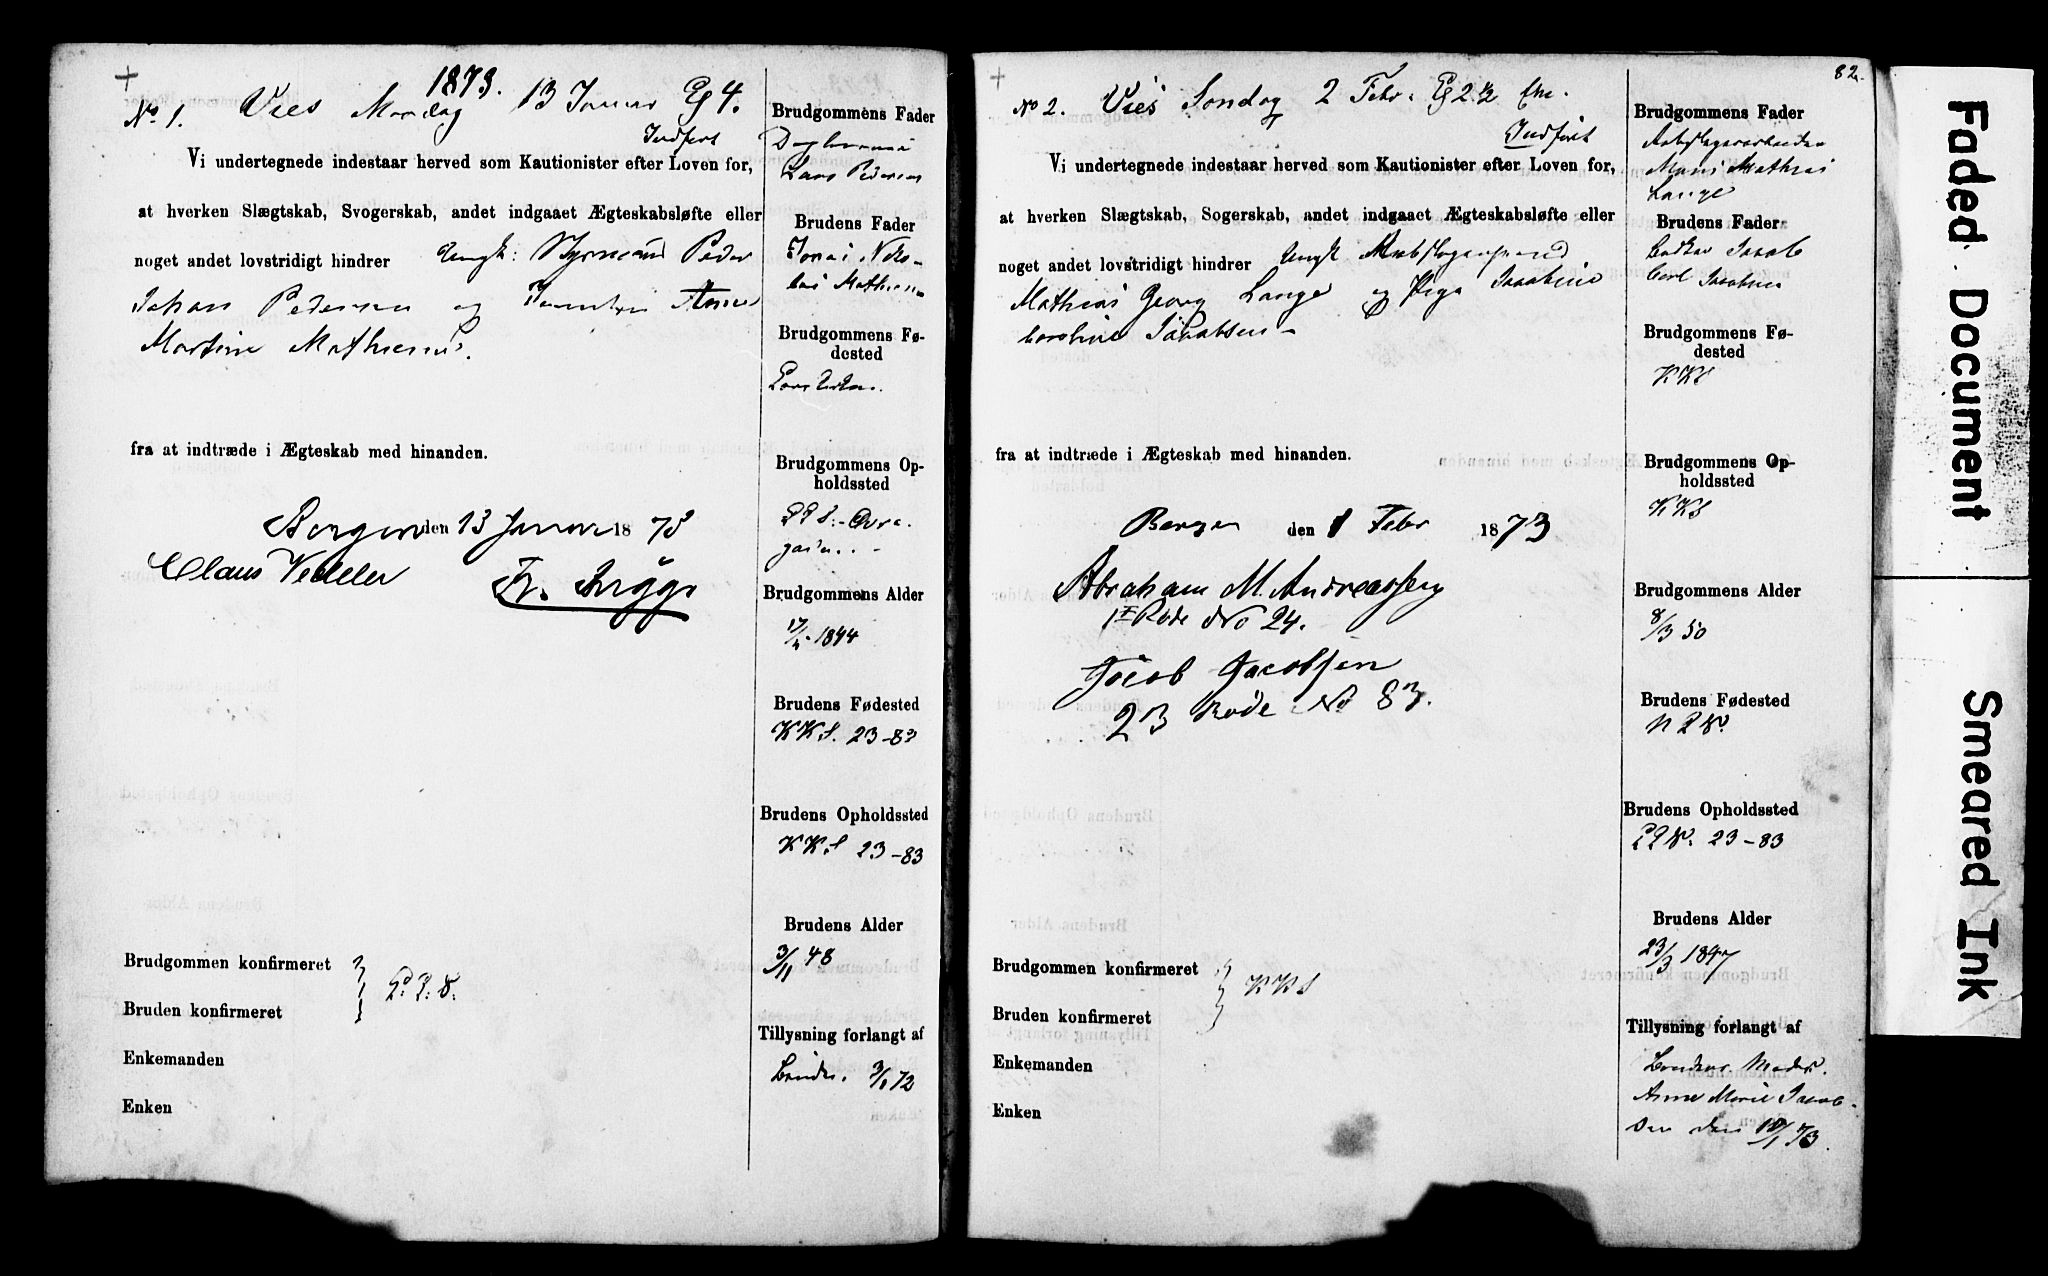 1873.
No. 1. Vies Mandag 13 Januar Kl 4.
Indført
Vi undertegnede indestaar herved som Kautionister efter Loven for,
at hverken Slægtskab, Svogerskab, andet indgaaet Ægteskabsløfte eller
noget andet lovstridigt hindrer Ungk: Styrmand Peder
Johan Pedersen og
Martine Mathiesen.
fra at indtræde i Ægteskab med hinanden.
Bergen den 13 Januar 1873
Claus Vedeler Fr.
Brudgommen konfirmeret
Bruden konfirmeret
Enkemanden
Enken
Brudgommens Fader
Lars Pedersen
Brudens Fader
Mathiesen
Brudgommens Fø-
dested
Brudgommens Op-
holdssted
Brudgommens Alder
1844
Brudens Fødested
KKS. 23-83
Brudens Opholdssted
KKS 23-83
Brudens Alder
3/11 48
Tillysning forlangt af
Bruden. 3/1 72
82.
No 2. Vies Søndag 2 Febr.
Indført
Vi undertegnede indestaar herved som Kautionister efter Loven for,
at hverken Slægtskab, Sogerskab, andet indgaaet Ægteskabsløfte eller
noget andet lovstridigt hindrer Ungk
Mathias Georg Lange og Pige Jacobine
Caroline Jacobsen
fra at indtræde i Ægteskab med hinanden.
Bergen den 1 Febr 1873
Abraham M. Andreasberg
1ste Rode No 24.
Jacob Jacobsen
23 Rode No 83.
Brudgommen konfirmeret
Bruden konfirmeret
KKS
Enkemanden
Enken
Brudgommens Fader
Mathias
Lange
Brudens Fader
Jacob
Carl Jacobsen
Brudgommens Fø-
dested
KKS
Brudgommens Op-
holdssted
KKS
Brudgommens Alder
8/3 50
Brudens Fødested
Brudens Opholdssted
23-83
Brudens Alder
23/3 1847
Tillysning forlangt af
Brudens Moder.
Anne Marie Jacob-
sen den 10/1 73.
Faded Document
Smeared Ink